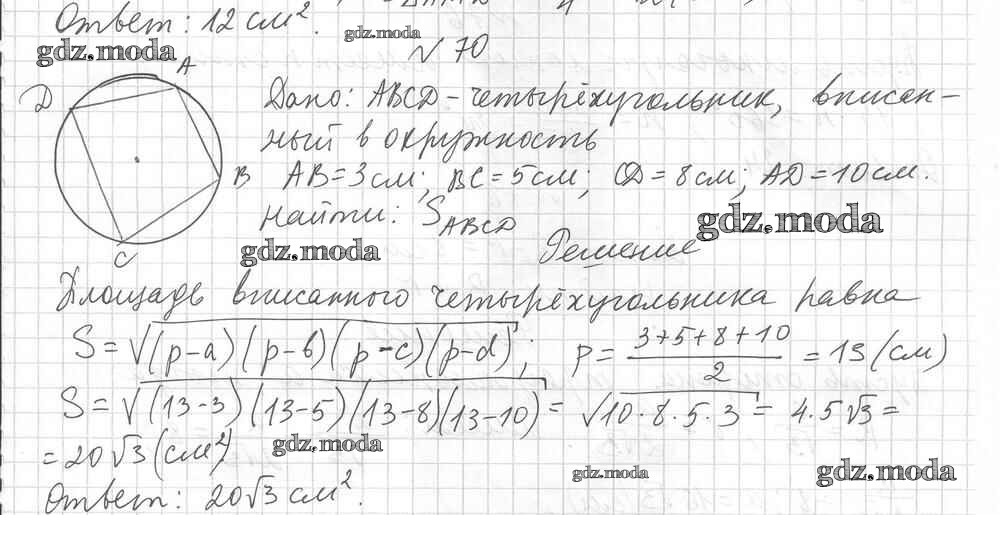 Ответ: 12 см².
gdz.moda
gdz.moda
№ 70
A
D
B
C
Дано: ABCD – четырёхугольник, вписан-
ный в окружность
AB = 3 см; BC = 5 см; CD = 8 см; AD = 10 см.
Найти: S_ABCD
gdz.moda
gdz.moda
Решение
Площадь вписанного четырёхугольника равна
S = √(p-a)(p-b)(p-c)(p-d); p = (3+5+8+10)/2 = 13 (см)
S = √(13-3)(13-5)(13-8)(13-10) = √10·8·5·3 = 4·5√3 =
= 20√3 (см²)
gdz.moda
gdz.moda
gdz.moda
Ответ: 20√3 см².